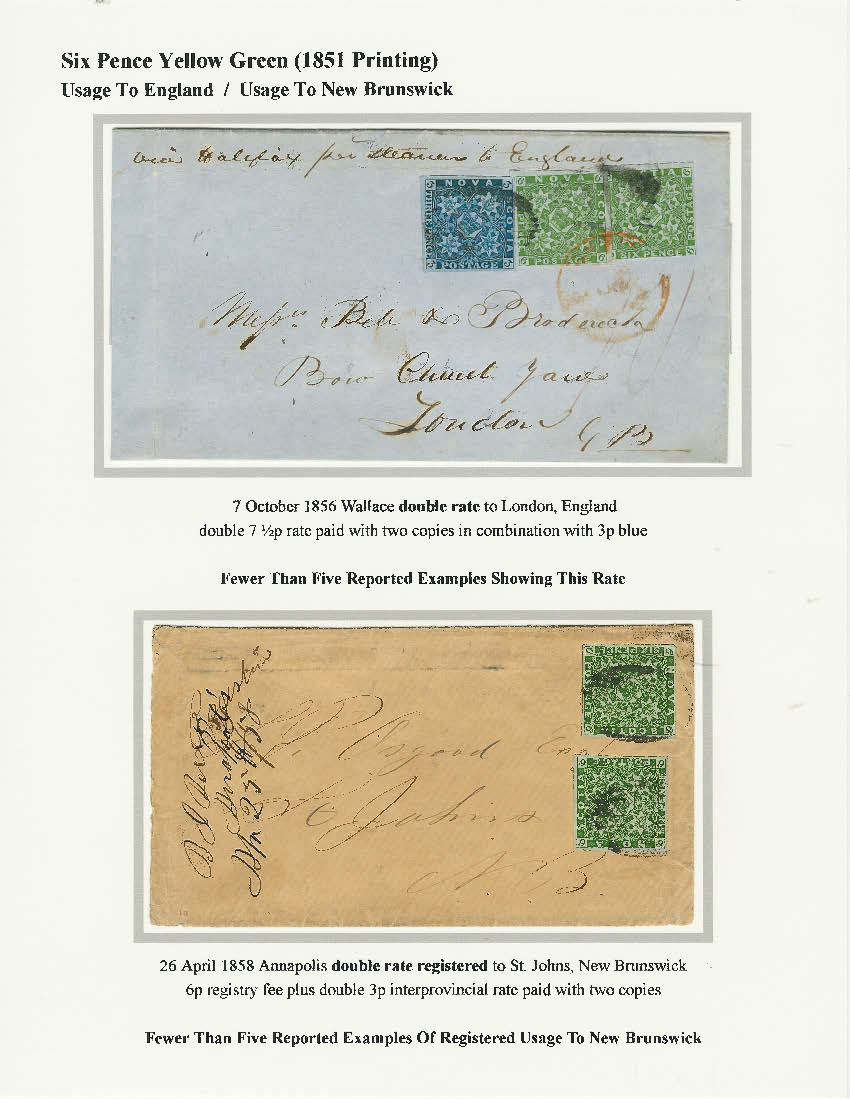 Six Pence Yellow Green (1851 Printing)
Usage To England / Usage To New Brunswick
via Halifax per steamer to England
NOVA
SCOTIA
THREE PENCE
POSTAGE
NOVA
POSTAGE
SIX PENCE
Messrs Bell & Broderick
Bow Church Yard
London
G B
7 October 1856 Wallace double rate to London, England
double 7 ½p rate paid with two copies in combination with 3p blue
Fewer Than Five Reported Examples Showing This Rate
Osgood
St Johns
N.B.
26 April 1858 Annapolis double rate registered to St. Johns, New Brunswick
6p registry fee plus double 3p interprovincial rate paid with two copies
Fewer Than Five Reported Examples Of Registered Usage To New Brunswick